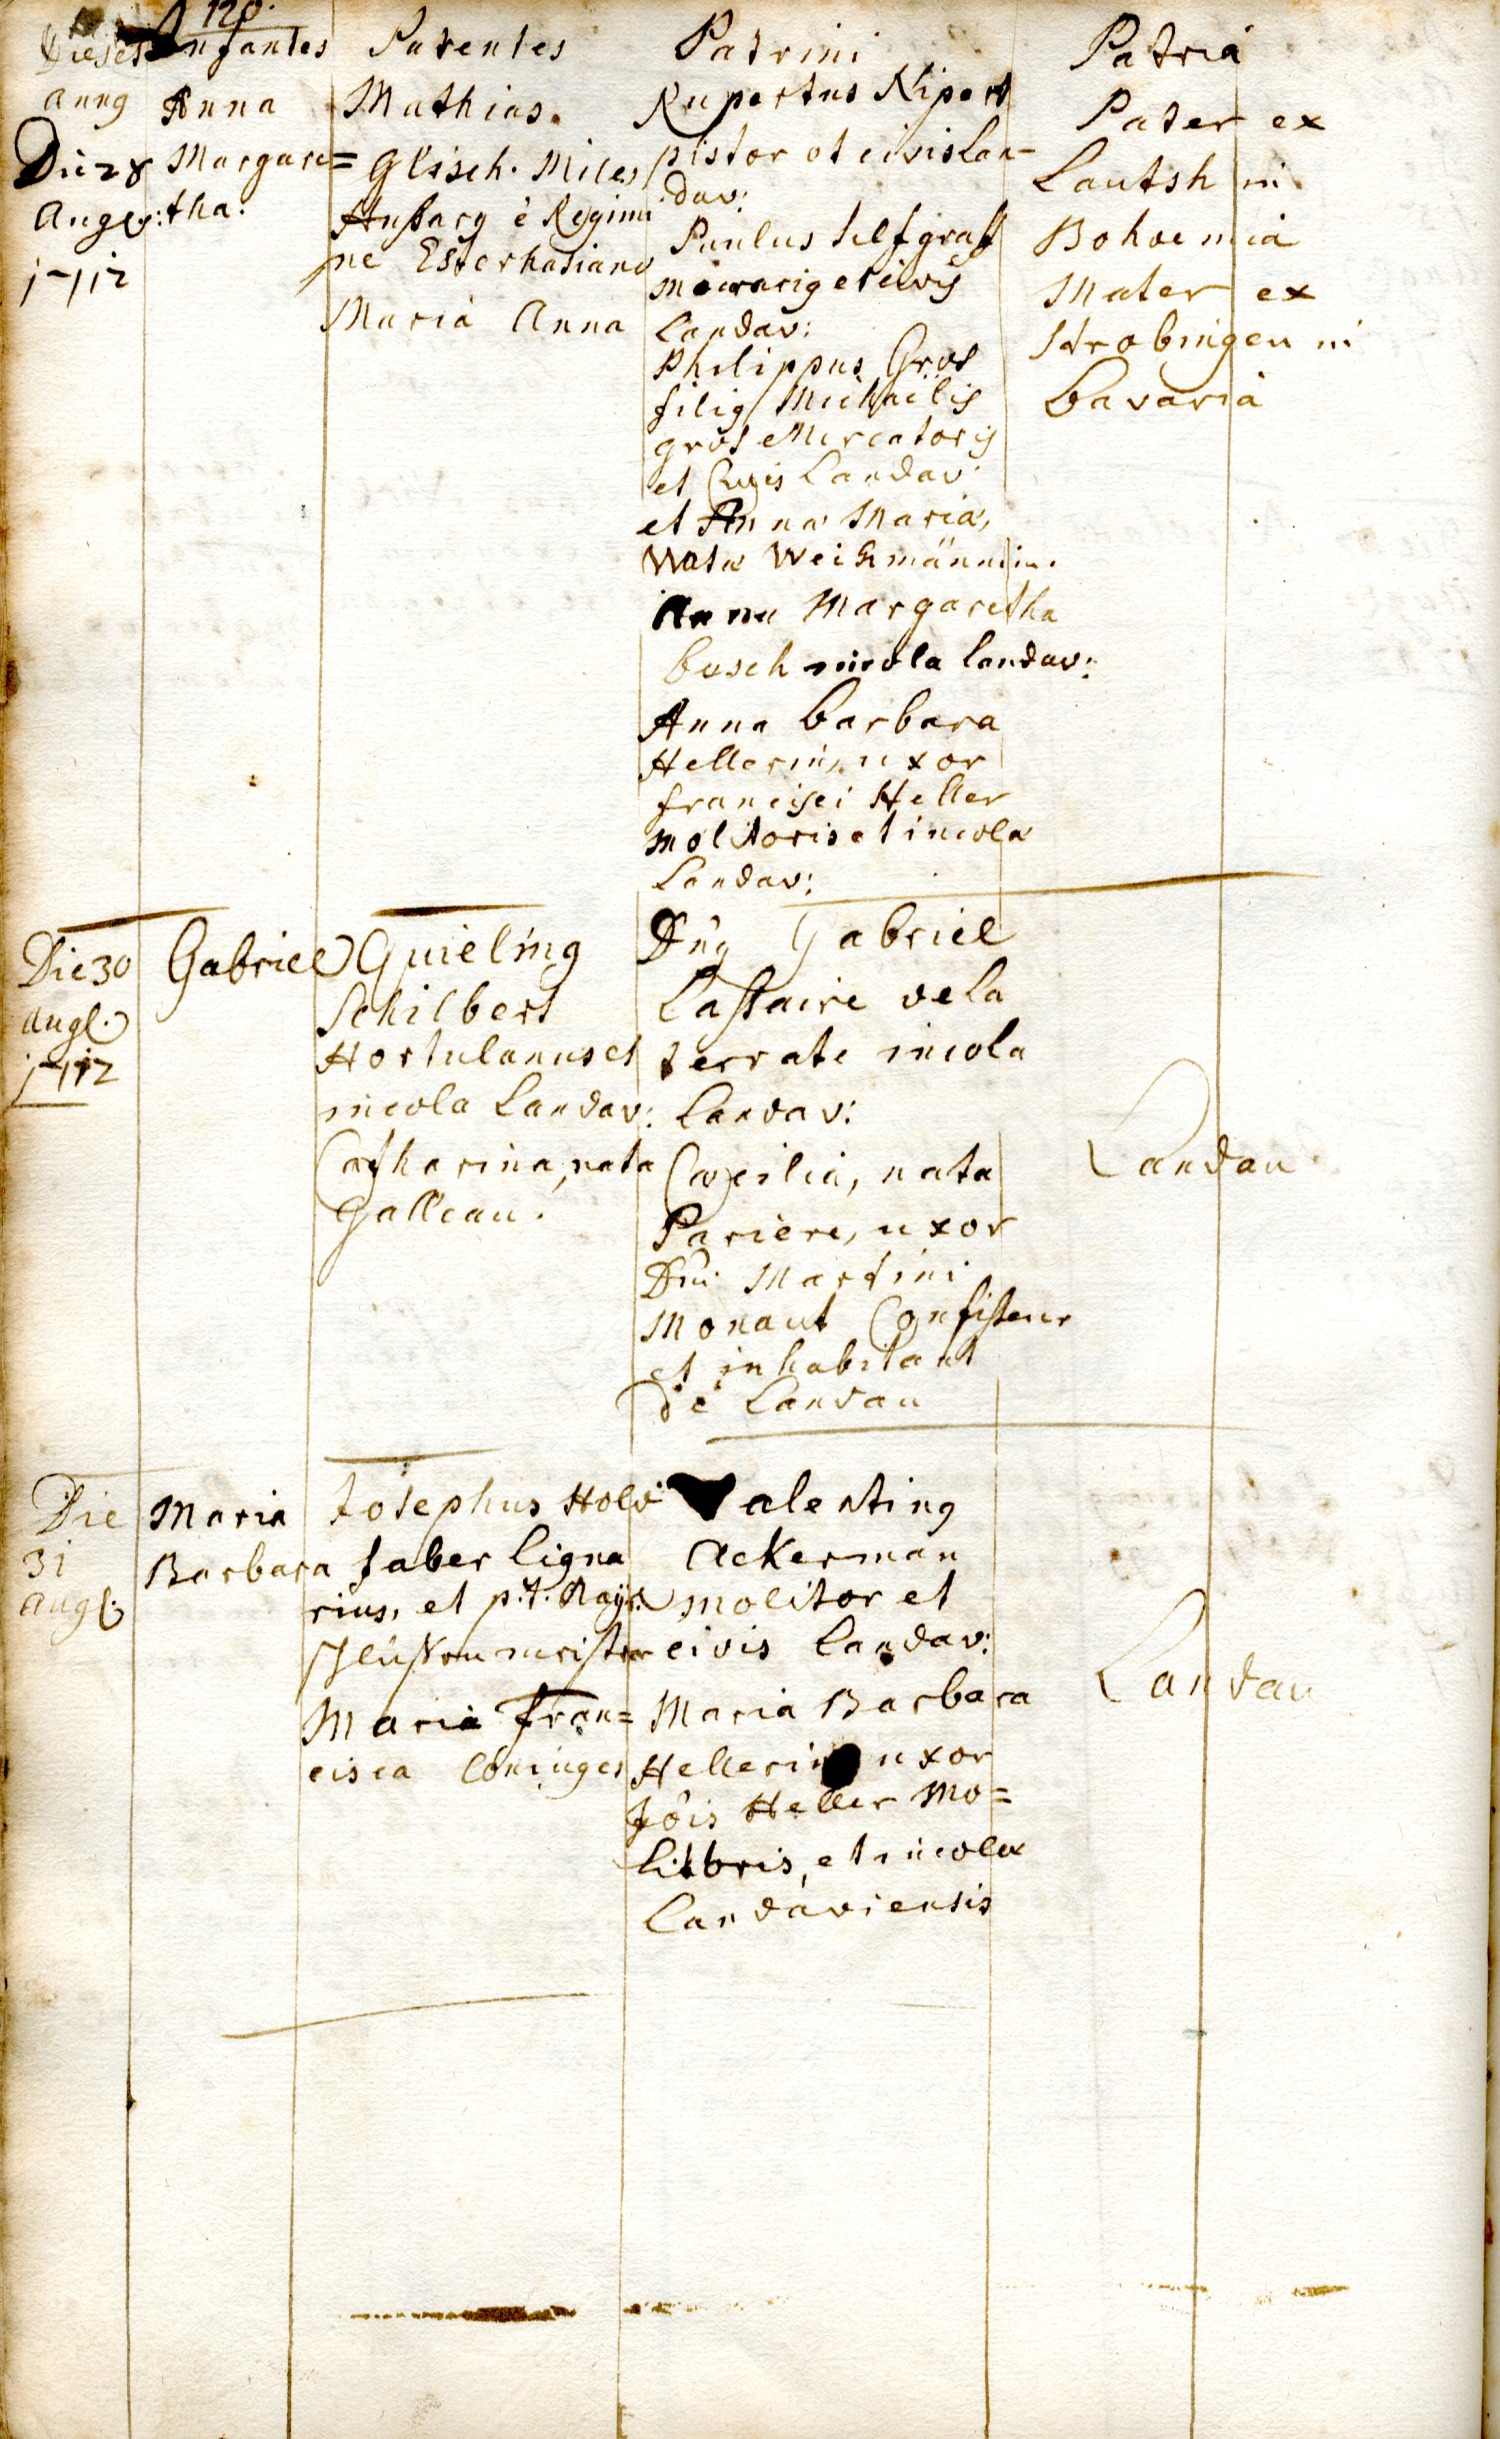 120.
Dies et
Anng
Infantes
Parentes
Patrini
Patria
Die 28
Aug9:
1712
Anna
Margare=
tha.
Mathias
Glisch. Miles
Hußarg è Regimi
ne Esterhasiano
Maria Anna
Rupertus Nipert
pistor et civis Lan-
dav:
Paulus
et civis
Landav:
Philippus Gros
filig Michaelis
gros Mercatoris
et Civis Landav:
et Anna Maria,
Nata Weichmännin.
Anna Margaretha
busch incola Landav:
Anna barbara
Hellerin, uxor
francisci Heller
molitoris et incola
Landav:
Pater ex
Lautsh in
Bohoemia
Mater ex
Strobingen in
bavaria
Die 30
Augl.
1712
Gabriel
Guieling
Schilbert
Hortulanus et
incola Landav:
Catharina, nata
Galleau.
Dng Gabriel
Lastaire de la
terrate incola
Landav:
Caecilia, nata
Pariere, uxor
Dni Martini
Monaut Confisteur
et inhabitant
de Landau
Landau
Die
31
Augl:
Maria
Barbara
Josephus Hold
faber ligna
rius, et p.t.
Maria Fran=
cisca Coniuges
Valenting
Ackerman
molitor et
civis Landav:
Maria Barbara
Hellerin uxor
Jois Heller Mo=
litoris, et incola
Landaviensis
Landau